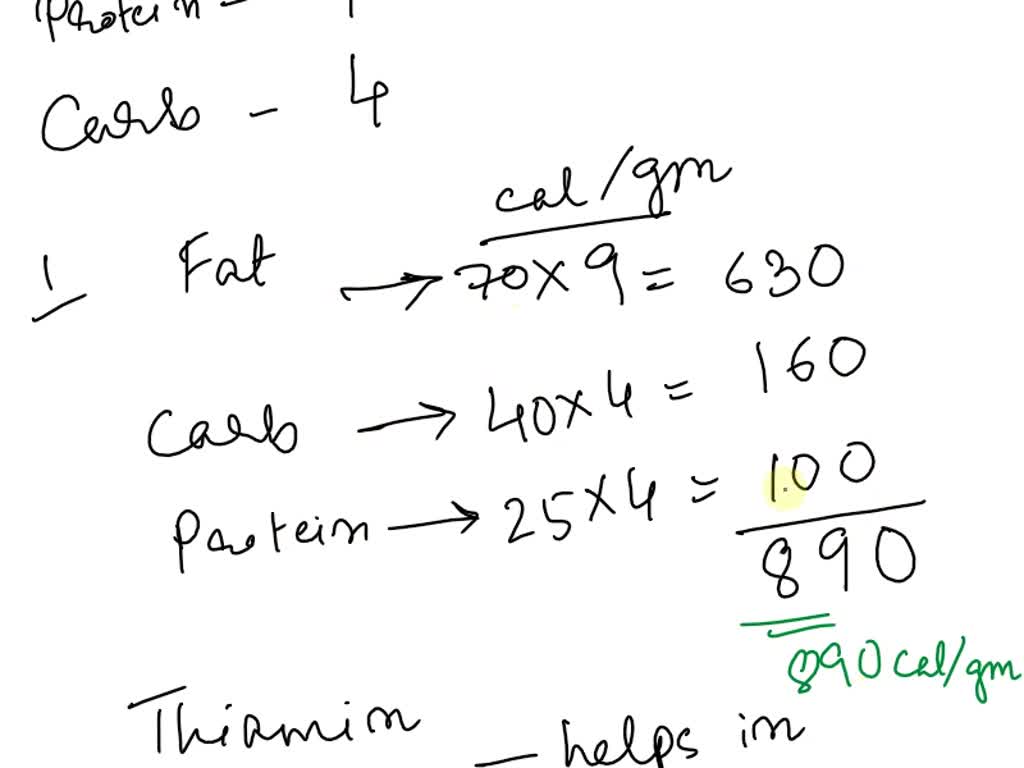 Protein -
Carb - 4
cal/gm
1 Fat → 70 x 9 = 630
Carb → 40 x 4 = 160
Protein → 25 x 4 = 100
890
890 cal/gm
Thiamin - helps in